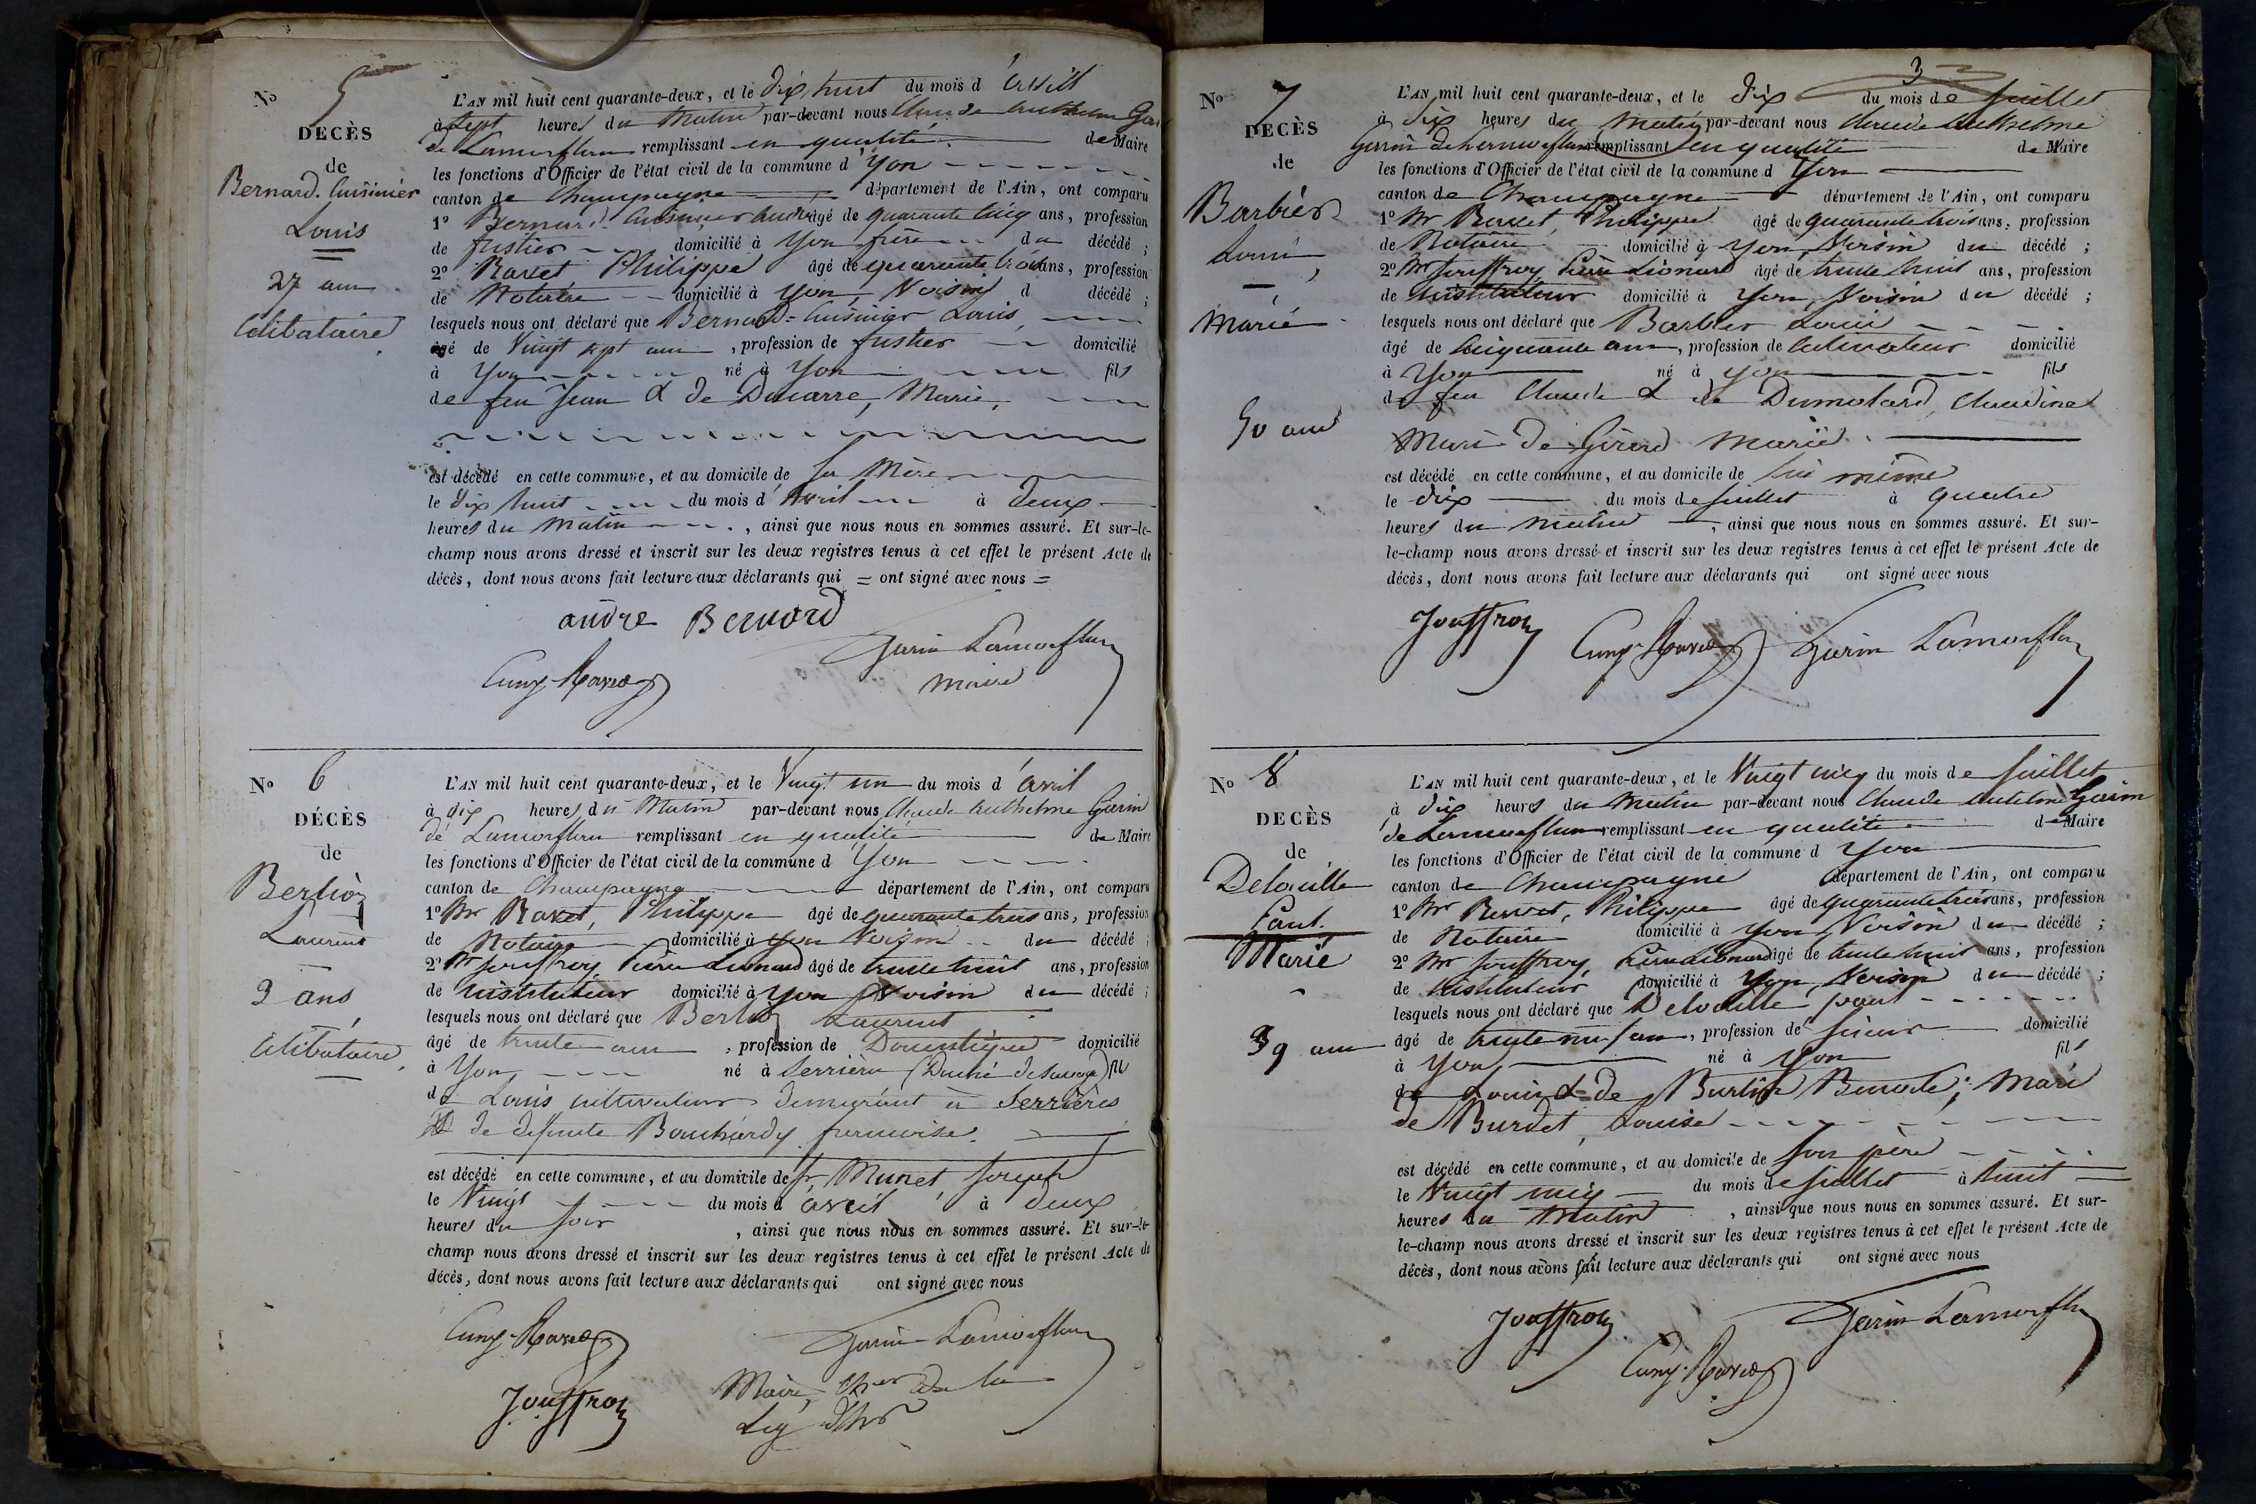 No 5
DECÈS
de
Bernard. Cuisinier
Louis
27 ans
Célibataire
L'AN mil huit cent quarante-deux, et le Dix huit du mois d'avril
à Sept heures du Matin par-devant nous Claude Anthelme Garin
de Lamorflan remplissant en qualité de Maire
les fonctions d'Officier de l'état civil de la commune d'Yon
canton de Champagne département de l'Ain, ont comparu
1° Bernard Cuisinier André âgé de quarante cinq ans, profession
de fustier domicilié à Yon frère du décédé ;
2° Ravet Philippe âgé de quarante trois ans, profession
de Notaire domicilié à Yon, Voisin d décédé ;
lesquels nous ont déclaré que Bernard=Cuisinier Louis
âgé de Vingt sept ans, profession de fustier domicilié
à Yon né à Yon fils
de feu Jean & de Ducarre, Marie,
est décédé en cette commune, et au domicile de sa Mère
le Dix huit du mois d'avril à Deux
heures du matin, ainsi que nous nous en sommes assuré. Et sur-le-
champ nous avons dressé et inscrit sur les deux registres tenus à cet effet le présent Acte de
décès, dont nous avons fait lecture aux déclarants qui = ont signé avec nous =
andre Bernard
Garin Lamorflan
Cuny-Ravet
Maire
No 6
DÉCÈS
de
Berlioz
Laurent
ans
Célibataire
L'AN mil huit cent quarante-deux, et le Vingt un du mois d'avril
à dix heures du Matin par-devant nous Claude Anthelme Garin
de Lamorflan remplissant en qualité de Maire
les fonctions d'Officier de l'état civil de la commune d Yon
canton de Champagne département de l'Ain, ont comparu
1° Mr Ravet, Philippe âgé de quarante trois ans, profession
de Notaire domicilié à Yon Voisin du décédé ;
2° Mr Jouffroy Pierre Léonard âgé de trente huit ans, profession
de instituteur domicilié à Yon Voisin du décédé ;
lesquels nous ont déclaré que Berlioz Laurent
âgé de trente ans, profession de Domestique domicilié
à Yon né à Serrières (Duché de Savoye) fils
de Louis cultivateur demeurant à Serrières
& de défunte Bouchardy francoise.
est décédé en cette commune, et au domicile de Sr Munet Joseph
le Vingt du mois d'avril à deux
heures du soir, ainsi que nous nous en sommes assuré. Et sur-le-
champ nous avons dressé et inscrit sur les deux registres tenus à cet effet le présent Acte de
décès, dont nous avons fait lecture aux déclarants qui ont signé avec nous
Cuny-Ravet
Garin Lamorflan
Jouffroy
Maire, cher de la
Leg d'hr
3
No 7
DECÈS
de
Barbier
Louis
Marié
50 ans
L'AN mil huit cent quarante-deux, et le Dix du mois de Juillet
à Dix heures du Matin par-devant nous Claude Anthelme
Garin de Lamorflan remplissant en qualité de Maire
les fonctions d'Officier de l'état civil de la commune d Yon
canton de Champagne département de l'Ain, ont comparu
1° Mr Ravet, Philippe âgé de quarante trois ans, profession
de Notaire domicilié à Yon, Voisin du décédé ;
2° Mr Jouffroy Pierre Léonard âgé de trente huit ans, profession
de instituteur domicilié à Yon, Voisin du décédé ;
lesquels nous ont déclaré que Barbier Louis
âgé de Cinquante ans, profession de Cultivateur domicilié
à Yon né à Yon fils
de feu Claude & de Dumolard, Claudine
Mari de Girard Marie.
est décédé en cette commune, et au domicile de lui même
le dix du mois de Juillet à quatre
heures du matin, ainsi que nous nous en sommes assuré. Et sur-
le-champ nous avons dressé et inscrit sur les deux registres tenus à cet effet le présent Acte de
décès, dont nous avons fait lecture aux déclarants qui ont signé avec nous
Jouffroy
Cuny-Ravet
Garin Lamorflan
No 8
DECÈS
de
Delaville
Paul.
Marié
39 ans
L'AN mil huit cent quarante-deux, et le Vingt cinq du mois de Juillet
à Dix heures du Matin par-devant nous Claude Antelme Garin
de Lamorflan remplissant en qualité de Maire
les fonctions d'Officier de l'état civil de la commune d Yon
canton de Champagne département de l'Ain, ont comparu
1° Mr Ravet, Philippe âgé de quarante trois ans, profession
de Notaire domicilié à Yon, Voisin du décédé ;
2° Mr Jouffroy, Pierre Léonard âgé de trente huit ans, profession
de instituteur domicilié à Yon, Voisin du décédé ;
lesquels nous ont déclaré que Delaville paul
âgé de trente neuf ans, profession de domicilié
à Yon né à Yon fils
de Louis & de Burlin ; Mari
de Burdet, Louise
est décédé en cette commune, et au domicile de son père
le Vingt cinq du mois de Juillet à huit
heures du Matin, ainsi que nous nous en sommes assuré. Et sur-
le-champ nous avons dressé et inscrit sur les deux registres tenus à cet effet le présent Acte de
décès, dont nous avons fait lecture aux déclarants qui ont signé avec nous
Jouffroy
Garin Lamorflan
Cuny-Ravet